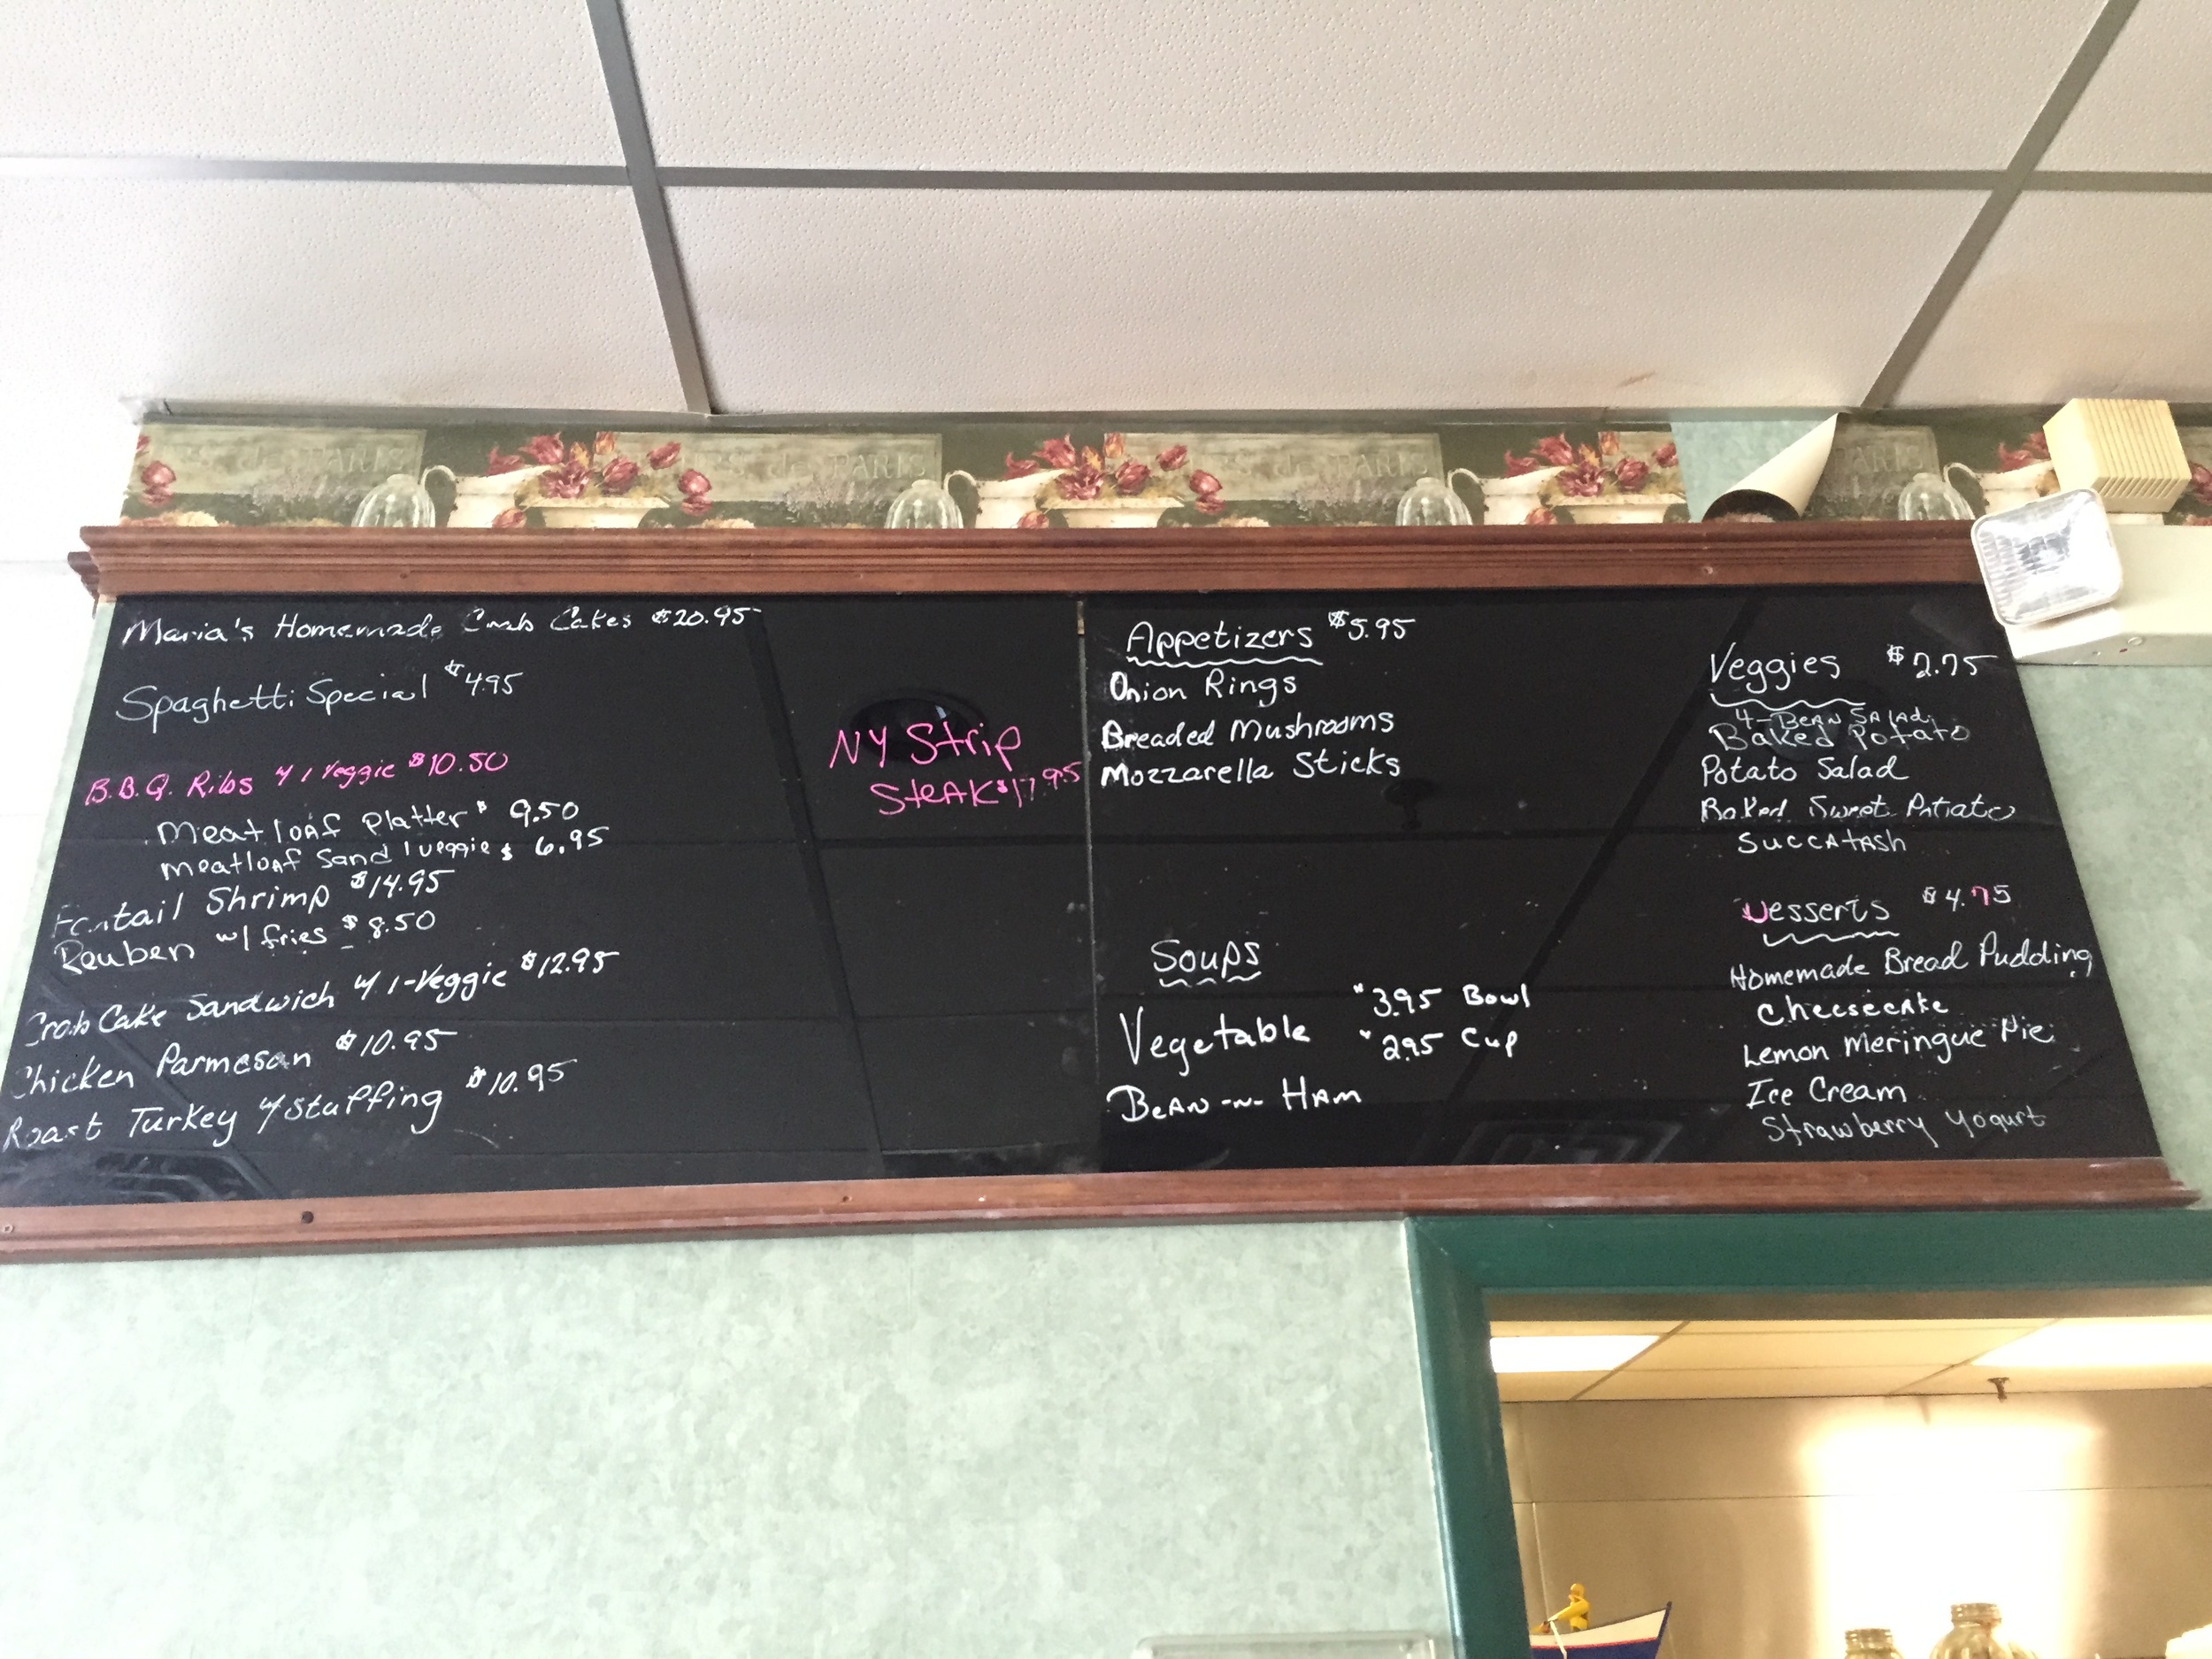 Maria's Homemade Crab Cakes $20.95
Spaghetti Special $4.95
B.B.Q. Ribs w/ 1 Veggie $10.50
Meatloaf Platter $ 9.50
Meatloaf Sand 1 veggie $ 6.95
Fantail Shrimp $14.95
Reuben w/ fries $8.50
Crab Cake Sandwich w/ 1-Veggie $12.95
Chicken Parmesan $10.95
Roast Turkey w/ stuffing $10.95
NY Strip
Steak $17.95
Appetizers $5.95
Onion Rings
Breaded Mushrooms
Mozzarella Sticks
Soups
Vegetable
$3.95 Bowl
$2.95 Cup
Bean -n- Ham
Veggies $2.75
4-Bean Salad
Baked Potato
Potato Salad
Baked Sweet Potato
Succatash
Desserts $4.75
Homemade Bread Pudding
Cheesecake
Lemon Meringue Pie
Ice Cream
Strawberry Yogurt